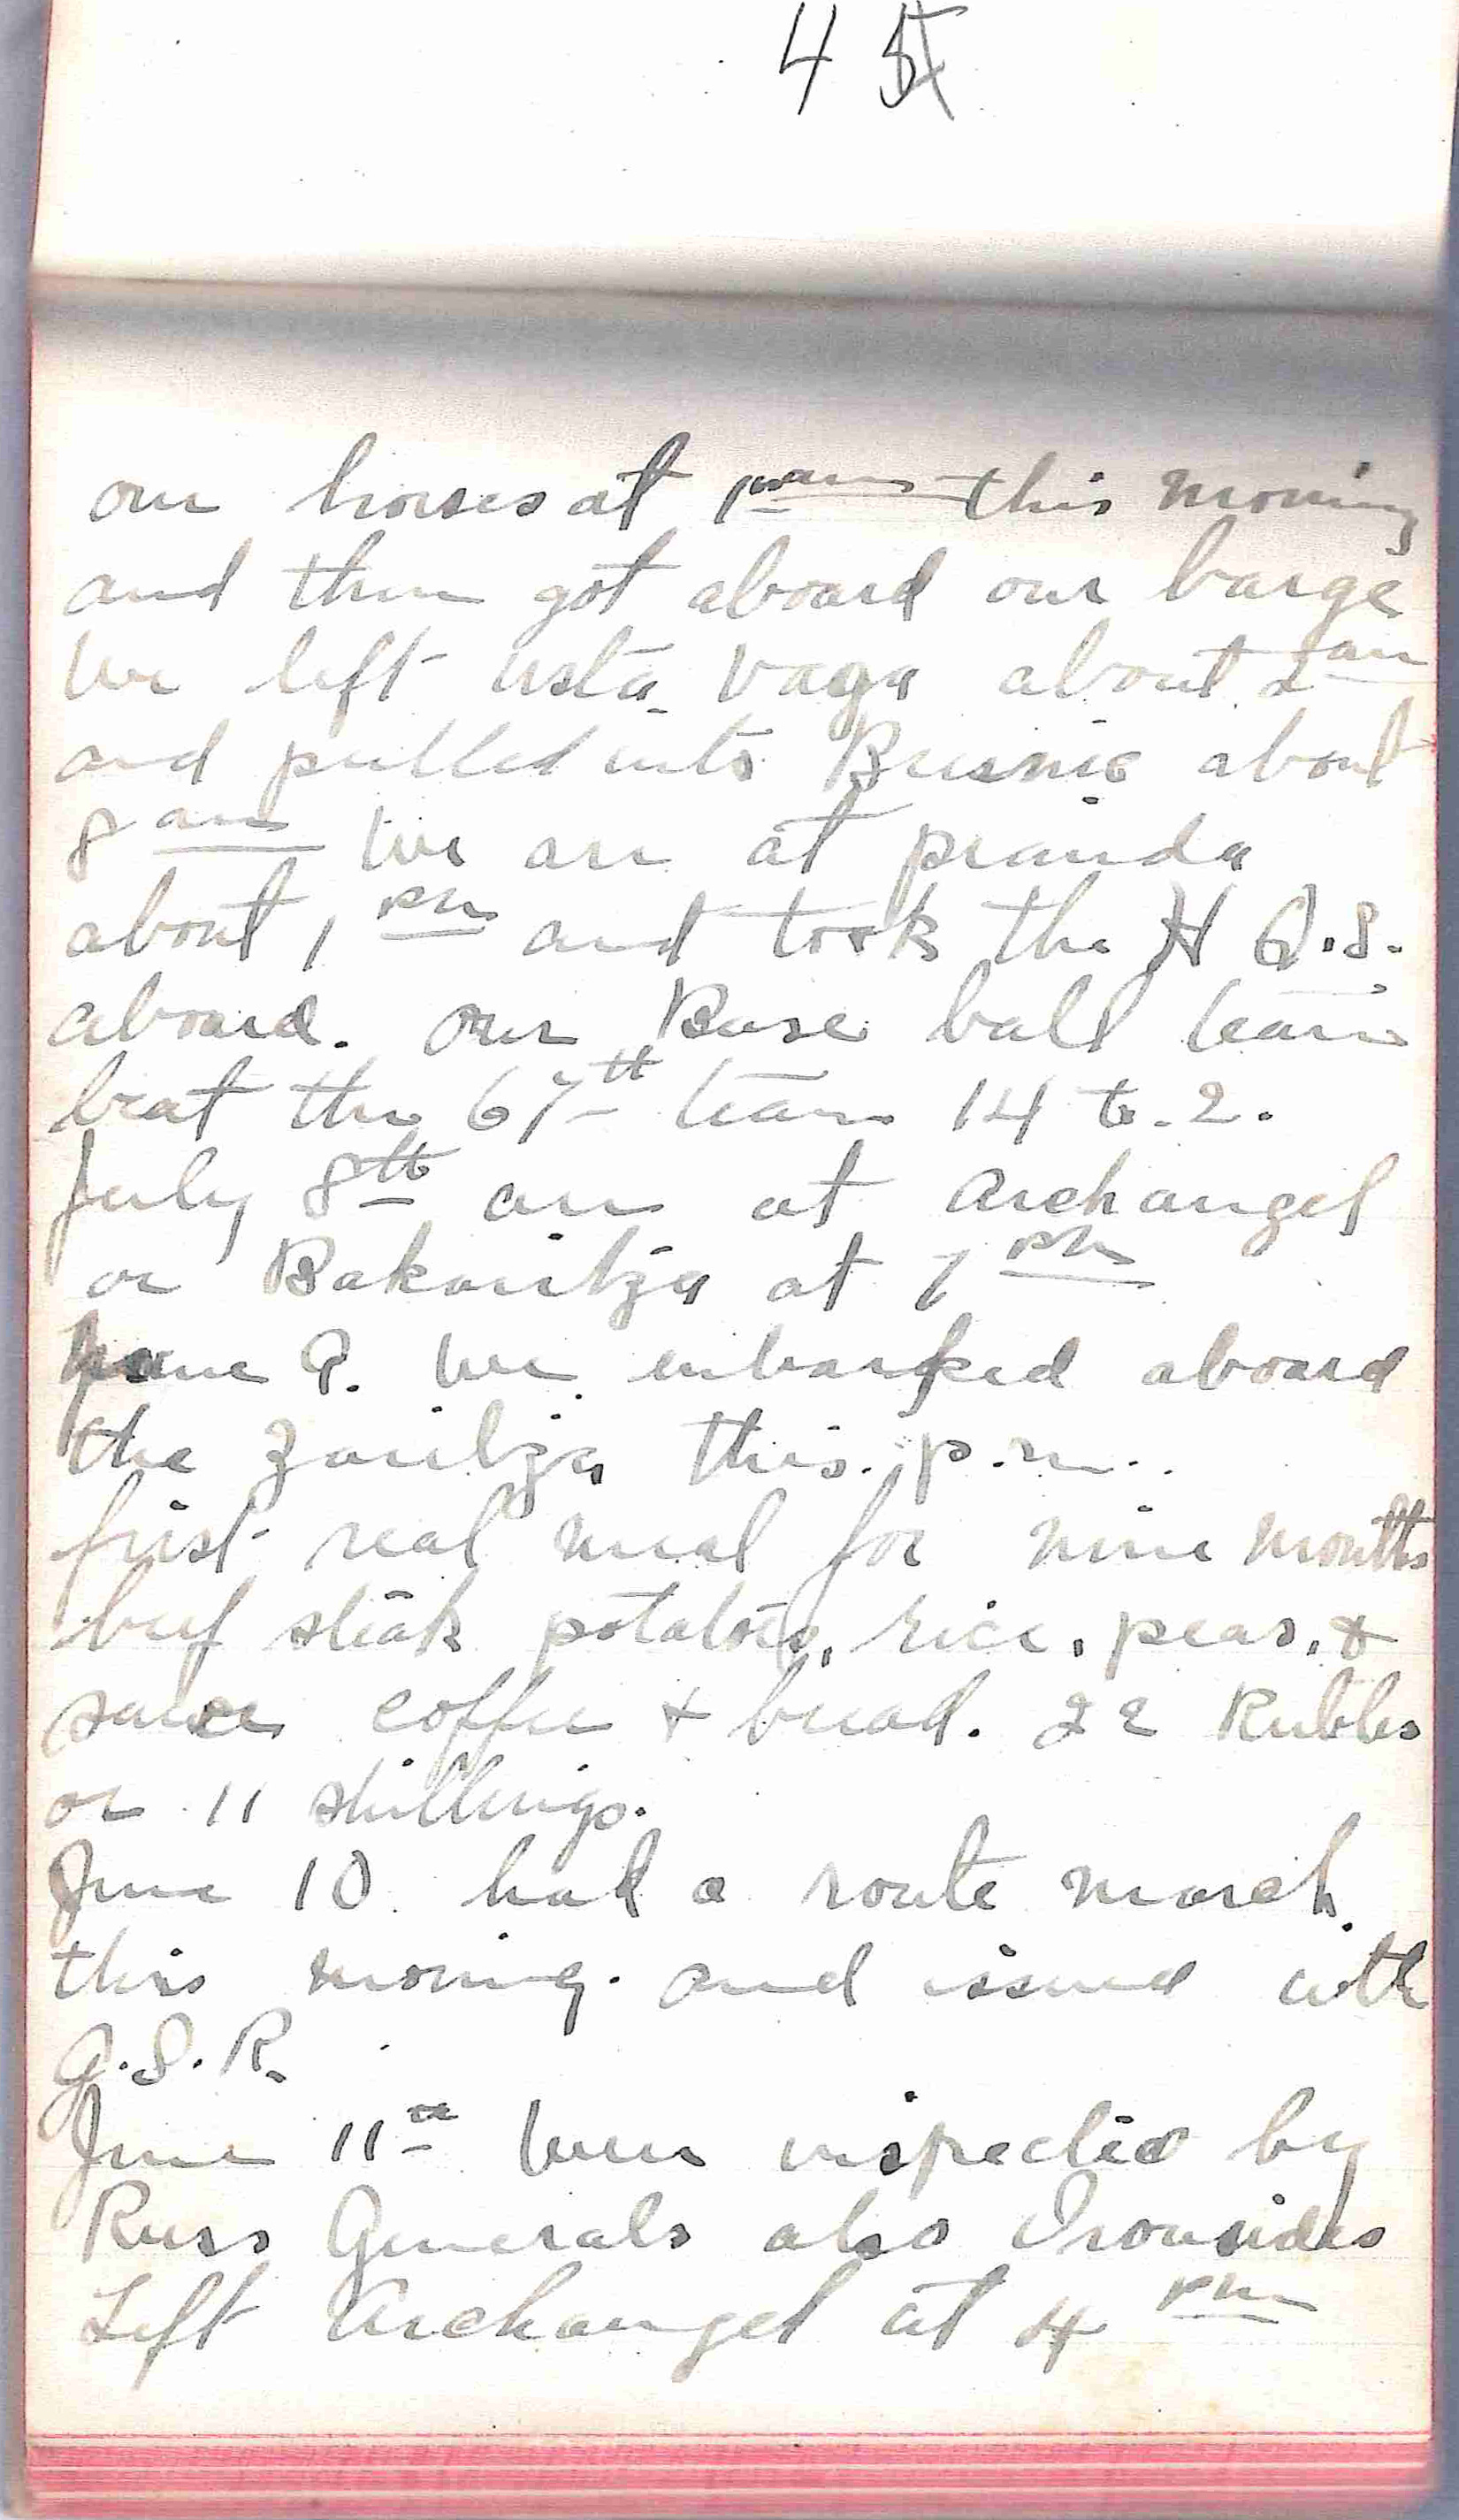 45
our horses at 1 am this morning
and then got aboard our barge
We left Usta Vaga about 2 am
and pulled into Beresnic about
8 am We arr at pianda
about 1 pm and took the H Q.S.
aboard. Our Base ball team
beat the 67th team 14 to. 2.
July 8th arr at Archangel
or Bakaritza at 7 pm
June 9. We embarked aboard
the Zaritza this. p.m..
first real meal for nine months
beef steak potatoes, rice, peas, &
sauce coffee & bread. 22 Rubles
or 11 shillings.
June 10 had a route march
this morning. and issued with
G.S.R.
June 11th Were inspected by
Russ Generals also Ironsides
Left Archangel at 4 pm